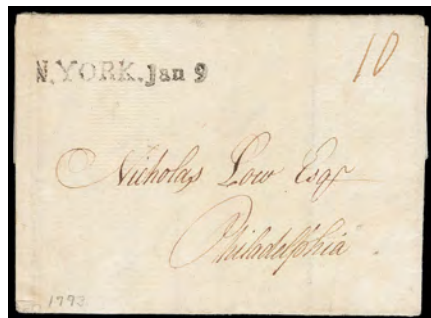 N. YORK. Jan 9
10
Nicholas Low Esqr
Philadelphia
1793